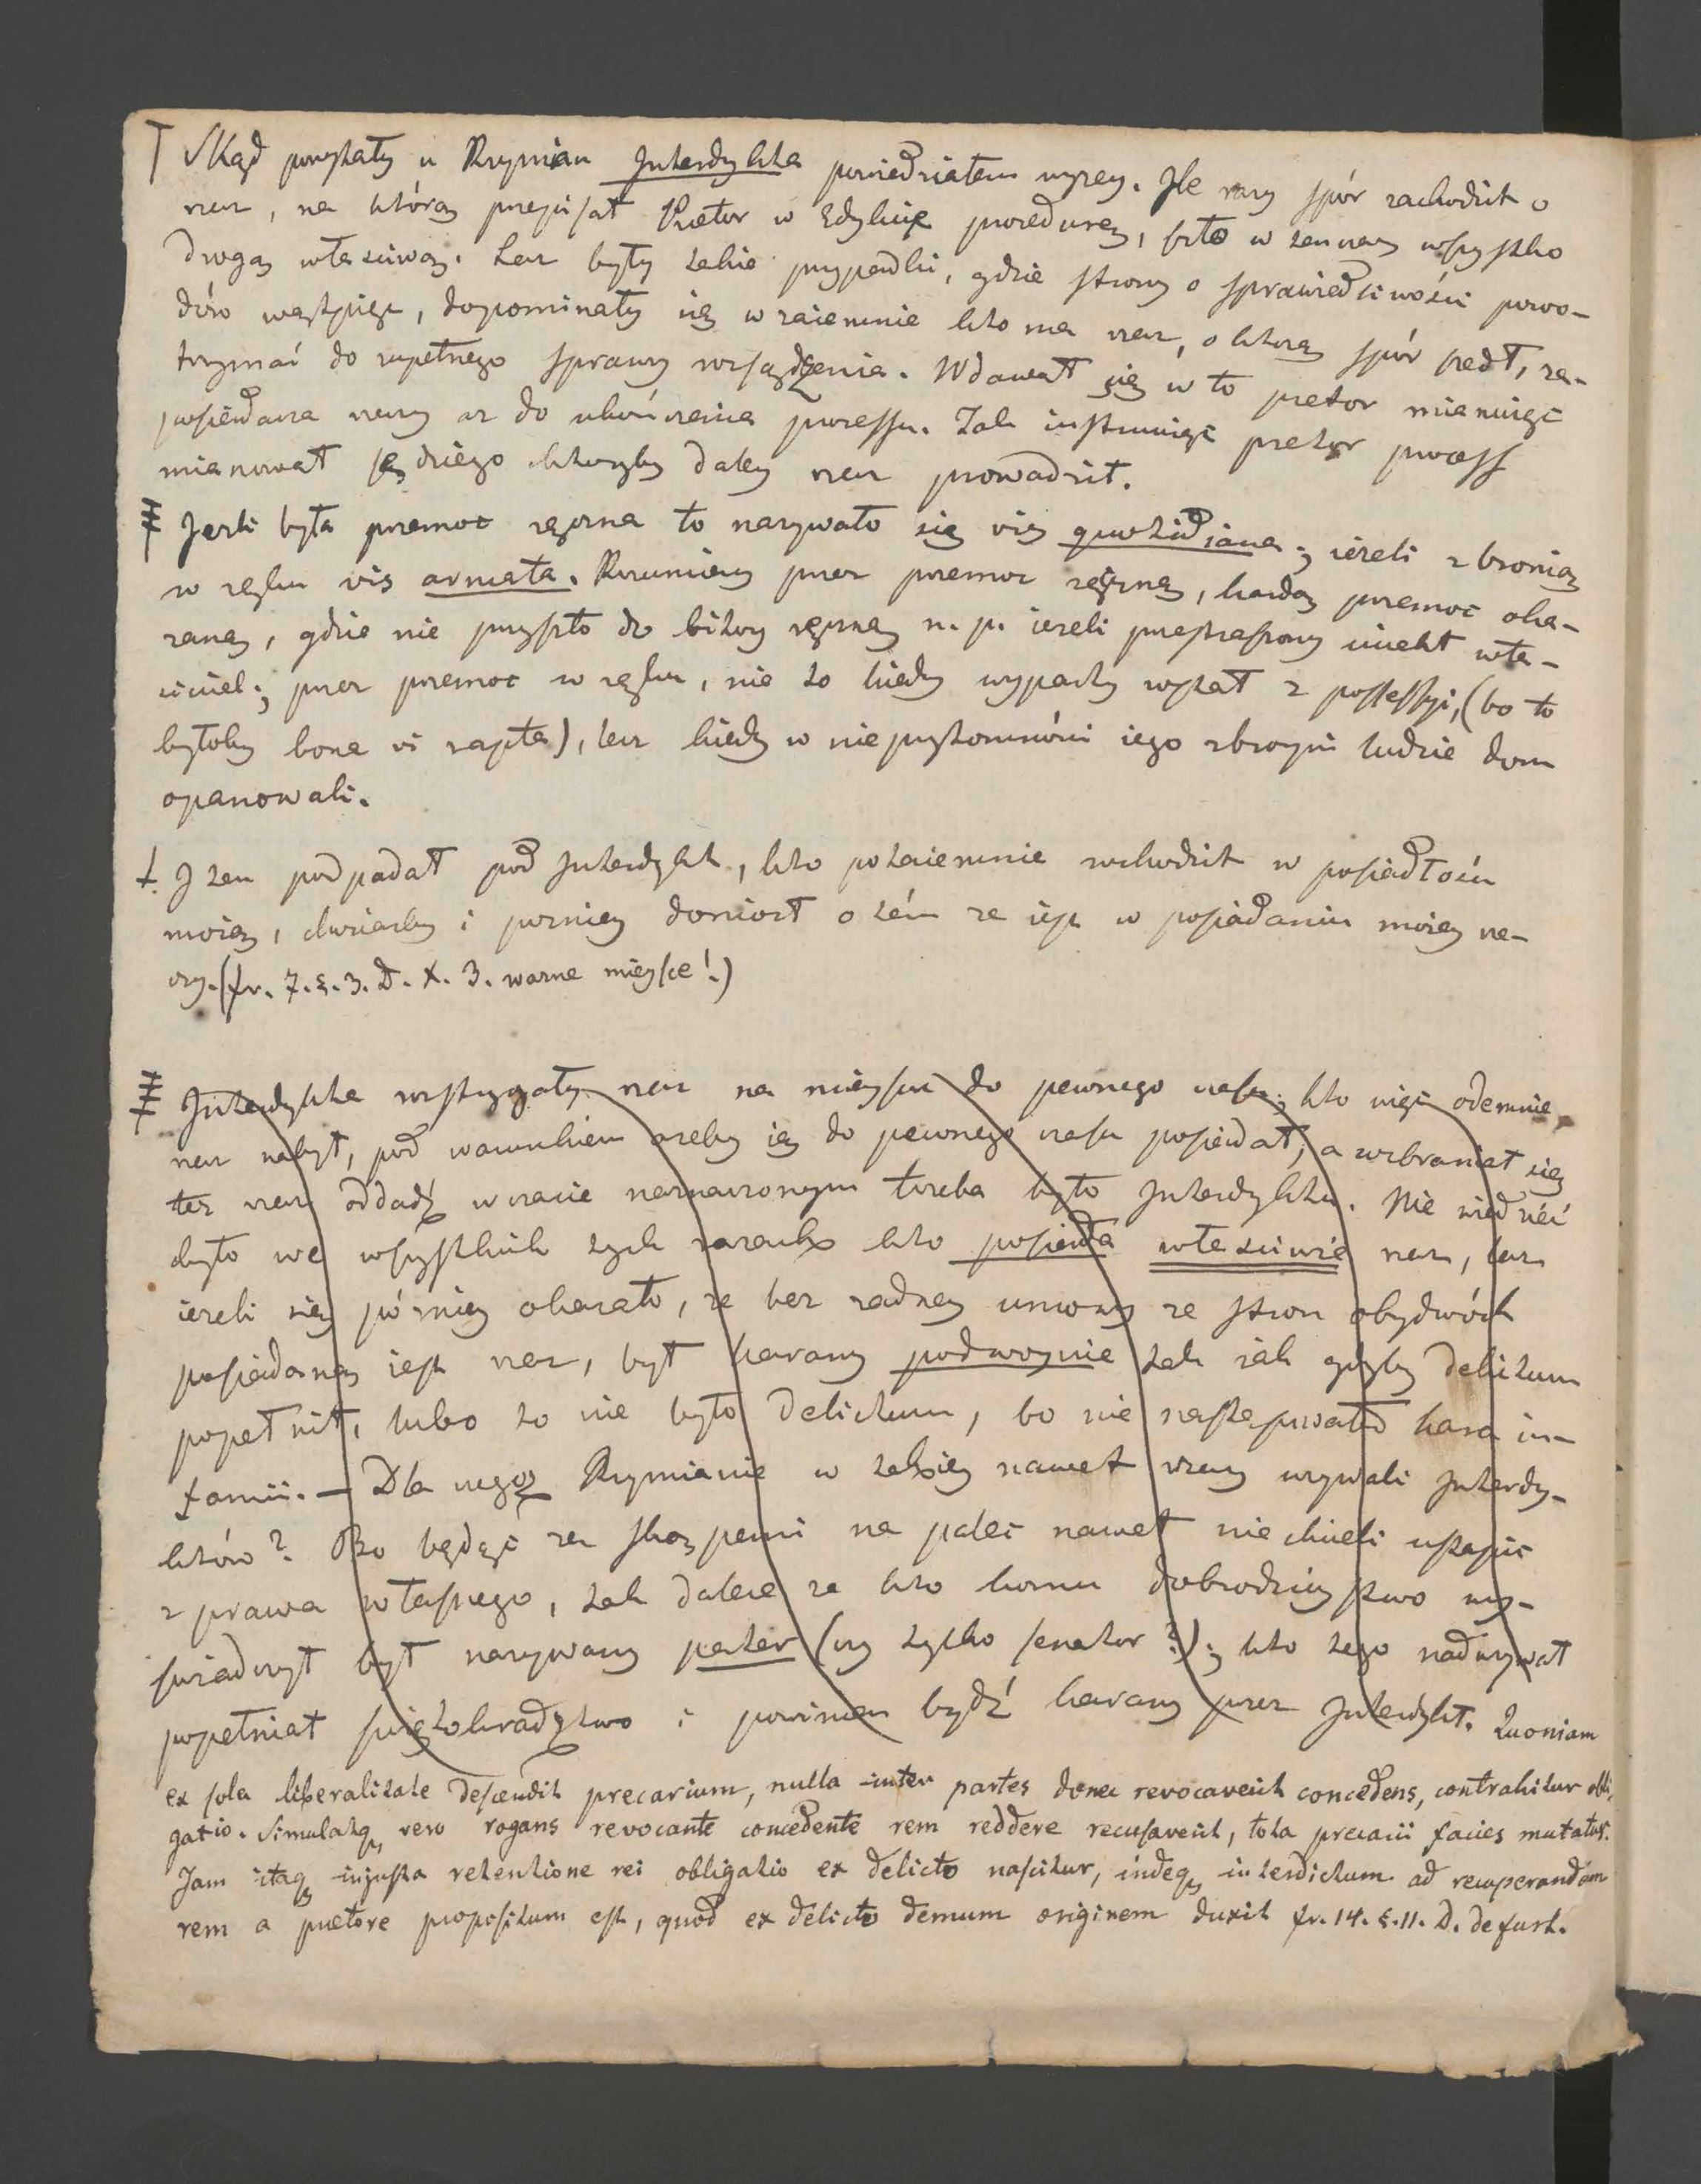 Skąd powstały u Rzymian Interdykta powiedziałem wyzey. Ile razy spór zachodził o
rzecz, na którą przepisał Pretor w Edykcie procedurę, szło w ten czas wszystko
drogą własciwą. Lecz były takie przypadki, gdzie strony o sprawiedliwości powo-
dów wątpiąc, dopominały się wzaiemnie kto ma rzecz, o którą spór szedł, za-
trzymać do zupełnego sprawy rozsądzenia. Wdawał się w to pretor mianuiąc
posiedacza rzeczy az do ukończenia processu. Tak instruuiąc pretor process
mianował sędziego któryby daley rzecz prowadził.
Jezli była przemoc ręczna to nazywało się vis quotidiana; iezeli z bronią
w ręku vis armata. Rozumiemy przez przemoc ręczną, kazdą przemoc oka-
zaną, gdzie nie przyszło do bitwy ręczney n. p. iezeli przestraszony uciekł wła-
sciciel; przez przemoc w ręku, nie to kiedy wyparty został z possessyi, (bo to
byłoby bona vi rapta), lecz kiedy w nieprzytomności iego zbroyni ludzie dom
opanowali.
I ten podpadał pod Interdykt, kto potaiemnie wchodził w posiadłość
moią, chociazby i pozniey doniosł o tém ze iest w posiadaniu moiey rze-
czy. (fr. 7. §. 3. D. X. 3. wazne mieysce!)
Interdykta rozstrzygały rzecz na mieyscu do pewnego czasu; kto więc odemnie
rzecz nabył, pod warunkiem azeby ią do pewnego czasu posiadał, a wzbraniał się
tez rzecz oddadź w czasie naznaczonym trzeba było Interdyktu. Nie wiedzieć
było we wszystkich tych razach kto posiada własciwie rzecz, lecz
iezeli się pózniey okazało, ze bez zadney umowy ze stron obydwóch
posiadaną iest rzecz, był karany podwoynie tak iak gdyby delictum
popełnił, lubo to nie było delictum, bo nie następowała kara in-
famii. — Dla czego Rzymianie w takiey nawet rzeczy uzywali Interdy-
któw? Bo będąc za skąpemi na palec nawet nie chcieli ustąpić
z prawa własnego, tak dalece ze kto komu dobrodzieystwo wy-
swiadczył był nazywany pater (czy tylko senator?); kto tego naduzywał
popełniał swiętokradztwo i powinien bydź karany przez Interdykt. Quoniam
ex sola liberalitate descendit precarium, nulla inter partes donec revocaverit concedens, contrahitur obli-
gatio. Simulatq, vero rogans revocante concedente rem reddere recusaverit, tota precarii facies mutatur.
Jam itaq, injusta retentione rei obligatio ex delicto nascitur, indeq, interdictum ad recuperandam
rem a praetore propositum est, quod ex delicto demum originem duxit fr. 14. §. 11. D. de furt.